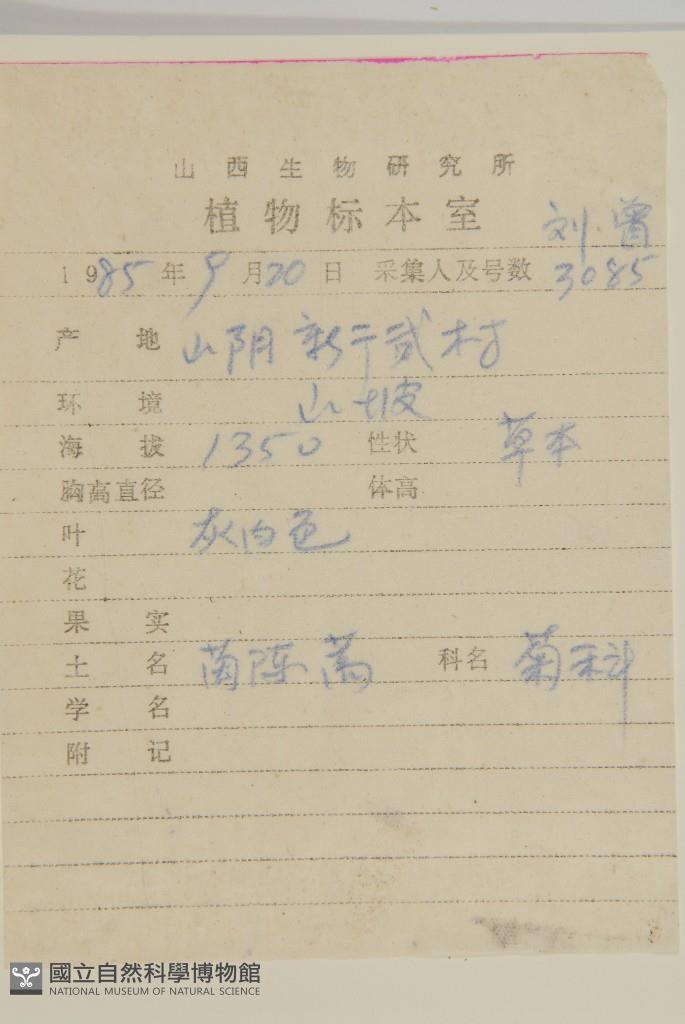 山西生物研究所
植物标本室
刘、曾
1985年9月20日 采集人及号数 3085
产地 山阴 村
环境 山坡
海拔 1350 性状 草本
胸高直径 体高
叶 灰白色
花
果实
土名 茵陈蒿 科名 菊科
学名
附记
國立自然科學博物館
NATIONAL MUSEUM OF NATURAL SCIENCE